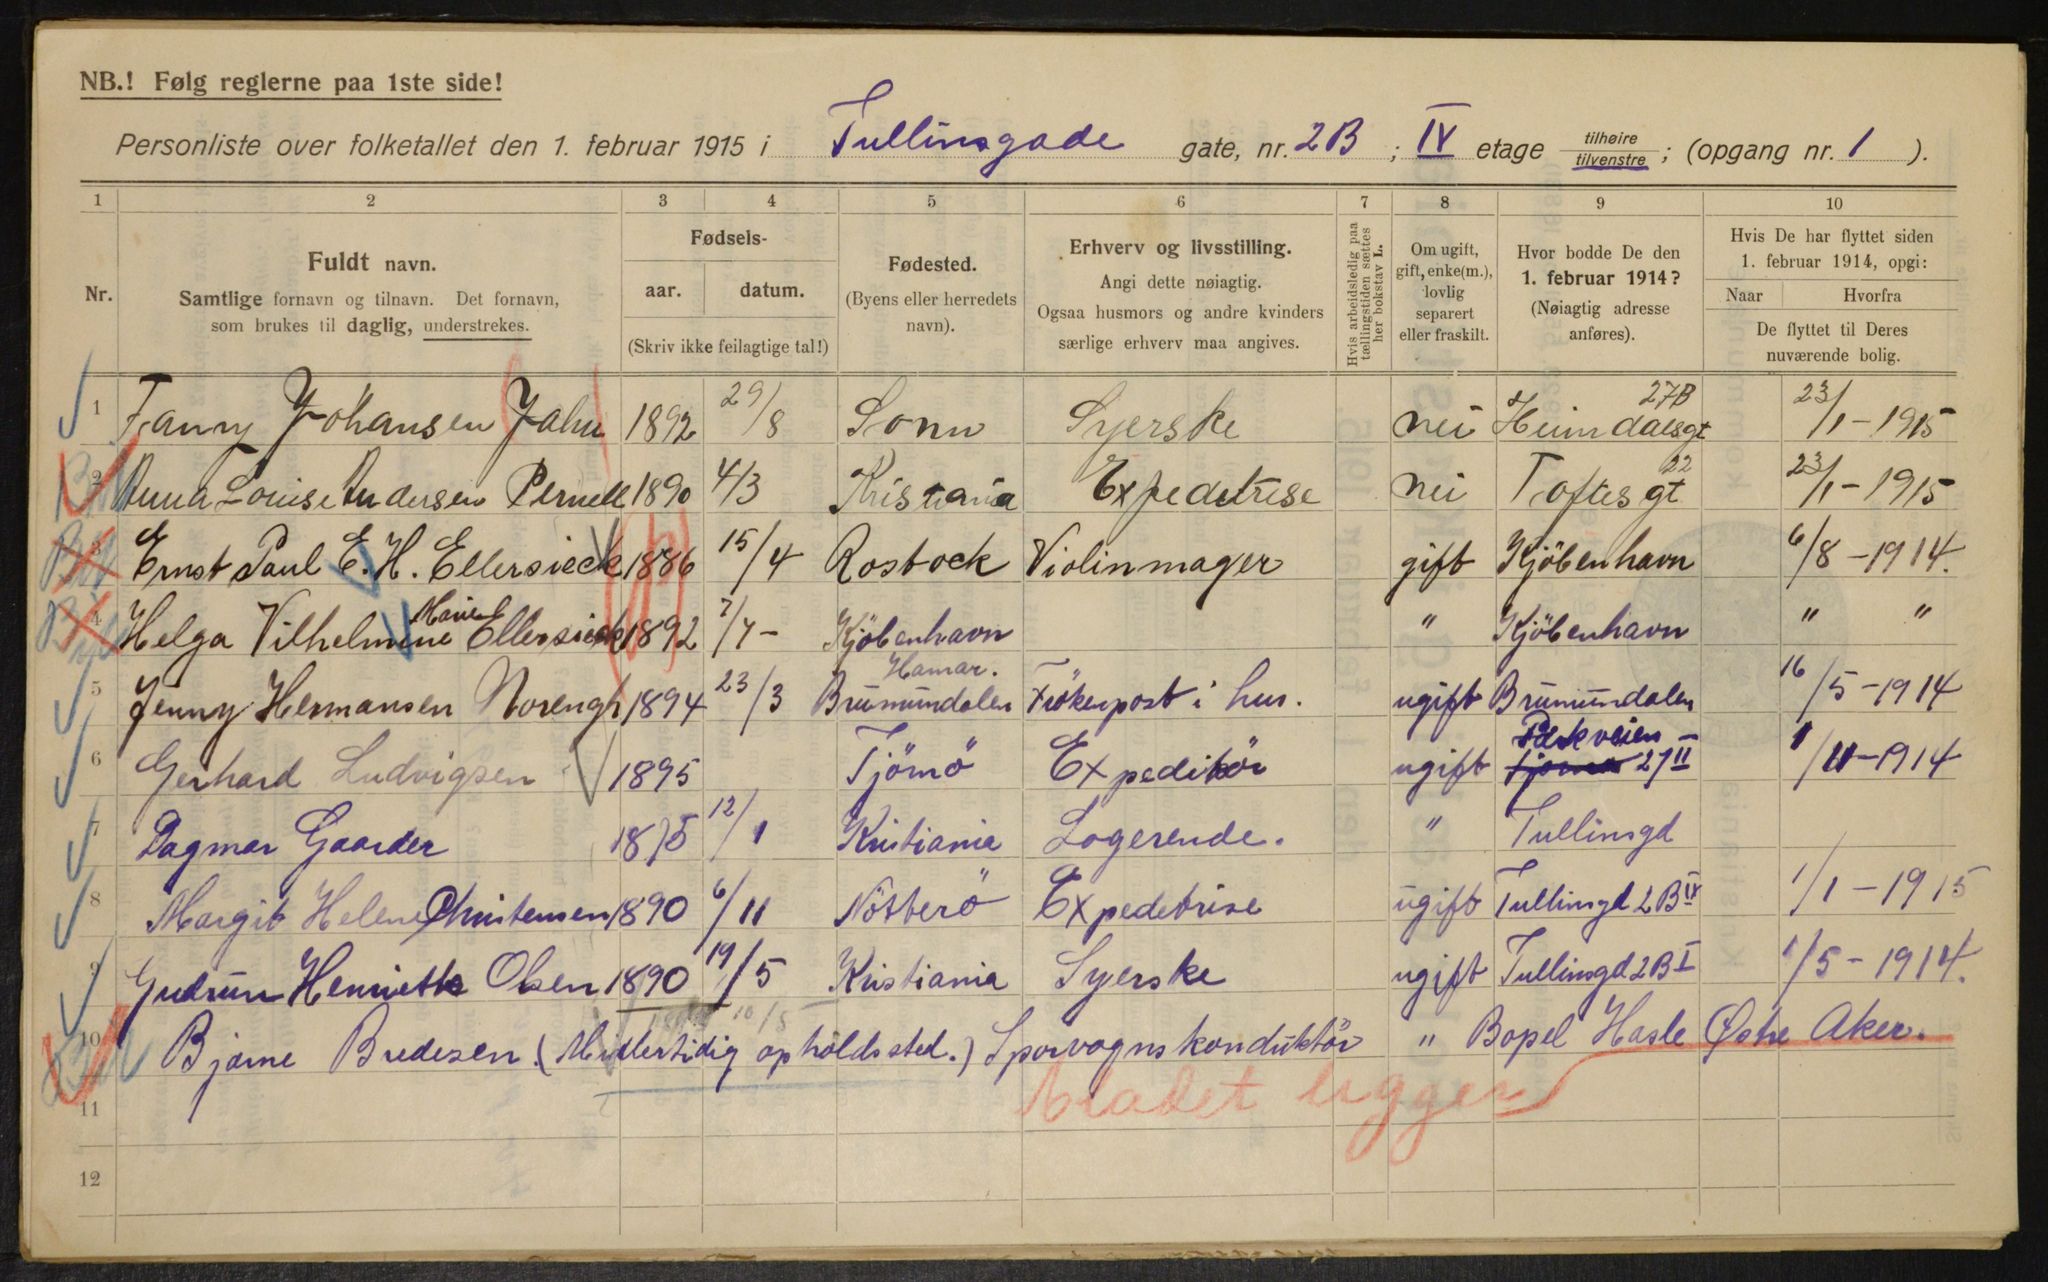 NB.! Følg reglerne paa 1ste side!
Personliste over folketallet den 1. februar 1915 i Tullinsgade gate, nr. 2B ; IV etage tilhøire tilvenstre ; (opgang nr. 1 ).
1 2 3 4 5 6 7 8 9 10
Nr.
Fuldt navn.
Samtlige fornavn og tilnavn. Det fornavn,
som brukes til daglig, understrekes.
Fødsels-
aar. datum.
(Skriv ikke feilagtige tal!)
Fødested.
(Byens eller herredets
navn).
Erhverv og livsstilling.
Angi dette nøiagtig.
Ogsaa husmors og andre kvinders
særlige erhverv maa angives.
Hvis arbeidsledig paa
tællingstiden sættes
her bokstav L.
Om ugift,
gift, enke(m.),
lovlig
separert
eller fraskilt.
Hvor bodde De den
1. februar 1914?
(Nøiagtig adresse
anføres).
Hvis De har flyttet siden
1. februar 1914, opgi:
Naar Hvorfra
De flyttet til Deres
nuværende bolig.
1 Fanny Johansen Jahn 1892 29/8 Sonn Syerske nei Heimdalsgt 27B 23/1-1915
2 Anna Louise Andersen Pernell 1890 4/3 Kristiania Expedetrise nei Toftesgt 22 23/1-1915
3 Ernst Paul E. H. Ellersieck 1886 15/4 Rostock Violinmager gift Kjöbenhavn 6/8-1914.
4 Helga Vilhelmine Marie Ellersieck 1892 7/7- Kjöbenhavn " Kjöbenhavn " "
5 Jenny Hermansen Norengh 1894 23/3 Brumundalen Hamar. Frökenpost i hus. ugift Brumundalen 16/5-1914
6 Gerhard Ludvigsen 1895 Tjömö Expeditör ugift Parkveien - 27 II 1/11-1914
7 Dagmar Gaarder 1875 12/1 Kristiania Logerende. " Tullinsgd
8 Margit Helene Christensen 1890 6/11 Nötterö Expedetrise ugift Tullinsgd 2B IV 1/1-1915
9 Gudrun Henriette Olsen 1890 19/5 Kristiania Syerske ugift Tullinsgd 2B I 1/5-1914.
10/5
10 Bjarne Bredesen. (Midlertidig opholdssted.) Sporvognskonduktör " Bopel Hasle Østre Aker.
11
12